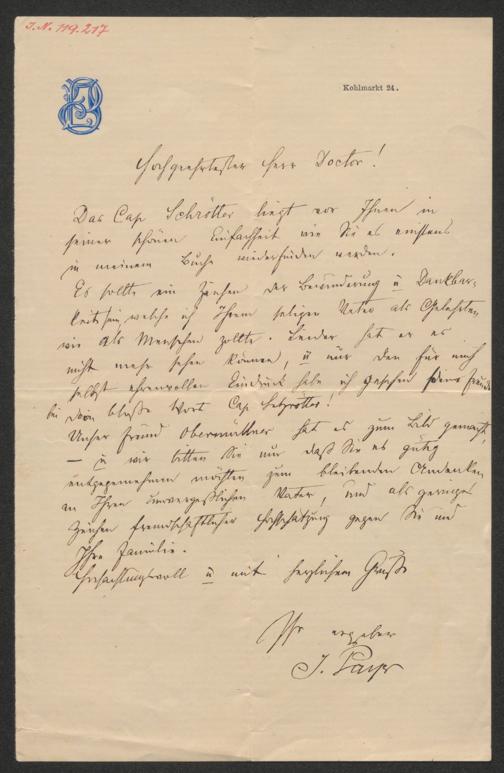 I.N. 119.217
Kohlmarkt 24.
Hochgeehrtester Herr Doctor!
Das Cap Schrötter liegt vor Ihnen in
seiner schönen Einfachheit wie Sie es einstens
in meinem Buche wiederfinden werden.
Es sollte ein Zeichen der Bewunderung u Dankbar-
keit sein, welche ich Ihrem seligen Vater als Gelehrten
wie als Menschen zollte. Leider hat er es
nicht mehr sehen können, u nur den für mich
selbst ehrenvollen Eindruck habe ich gesehen seine Freude
bei dem bloßen Wort Cap Schrötter!
Unser Freund Obermüllner hat es zum Bild gemacht,
— u wir bitten Sie nur daß Sie es gütig
entgegennehmen möchten zum bleibenden Andenken
an Ihren unvergeßlichen Vater, und als geringes
Zeichen freundschaftlicher Hochschätzung gegen Sie und
Ihre Familie.
Hochachtungsvoll u mit herzlichem Gruße
Ihr ergebener
J. Payer